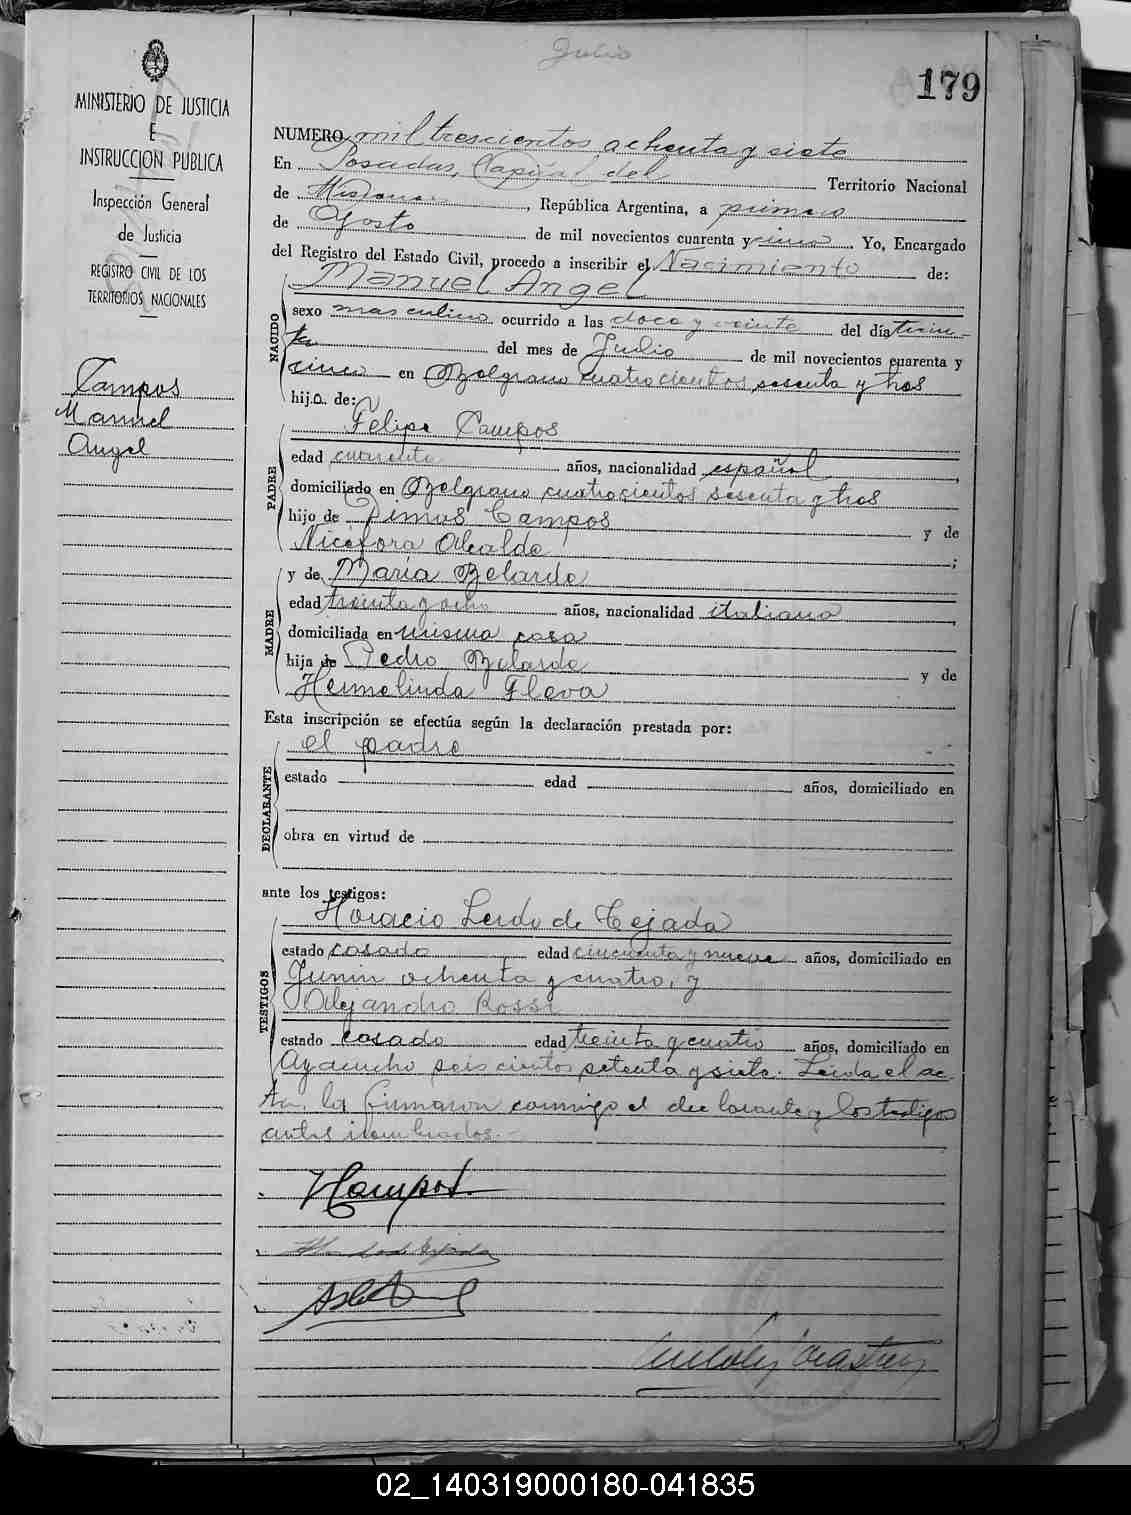 Julio
179
MINISTERIO DE JUSTICIA
E
INSTRUCCION PUBLICA
Inspección General
de Justicia
REGISTRO CIVIL DE LOS
TERRITORIOS NACIONALES
Campos
Manuel
Angel
NUMERO mil trescientos ochenta y siete
En Posadas, Capital del Territorio Nacional
de Misiones, República Argentina, a primero
de Agosto de mil novecientos cuarenta y cinco Yo, Encargado
del Registro del Estado Civil, procedo a inscribir el Nacimiento de:
Manuel Angel
NACIDO
sexo masculino ocurrido a las doce y veinte del día trein-
ta del mes de Julio de mil novecientos cuarenta y
cinco en Belgrano cuatrocientos sesenta y tres
hijo de:
Felipe Campos
PADRE
edad cuarenta años, nacionalidad español,
domiciliado en Belgrano cuatrocientos sesenta y tres
hijo de Dimas Campos y de
Nicéfora Alcalde;
y de María Belarde
MADRE
edad treinta y ocho años, nacionalidad italiana,
domiciliada en misma casa
hija de Pedro Belarde y de
Hermelinda Fleva
Esta inscripción se efectúa según la declaración prestada por:
el padre
DECLARANTE
estado edad años, domiciliado en
obra en virtud de
ante los testigos:
Horacio Lerdo de Tejada
TESTIGOS
estado casado edad cincuenta y nueve años, domiciliado en
Junín ochenta y cuatro, y
Alejandro Rossi
estado casado edad treinta y cuatro años, domiciliado en
Ayacucho seiscientos setenta y siete. Leída el ac-
ta, la firmaron conmigo el declarante y los testigos
antes nombrados.
HCampos.
02_140319000180-041835